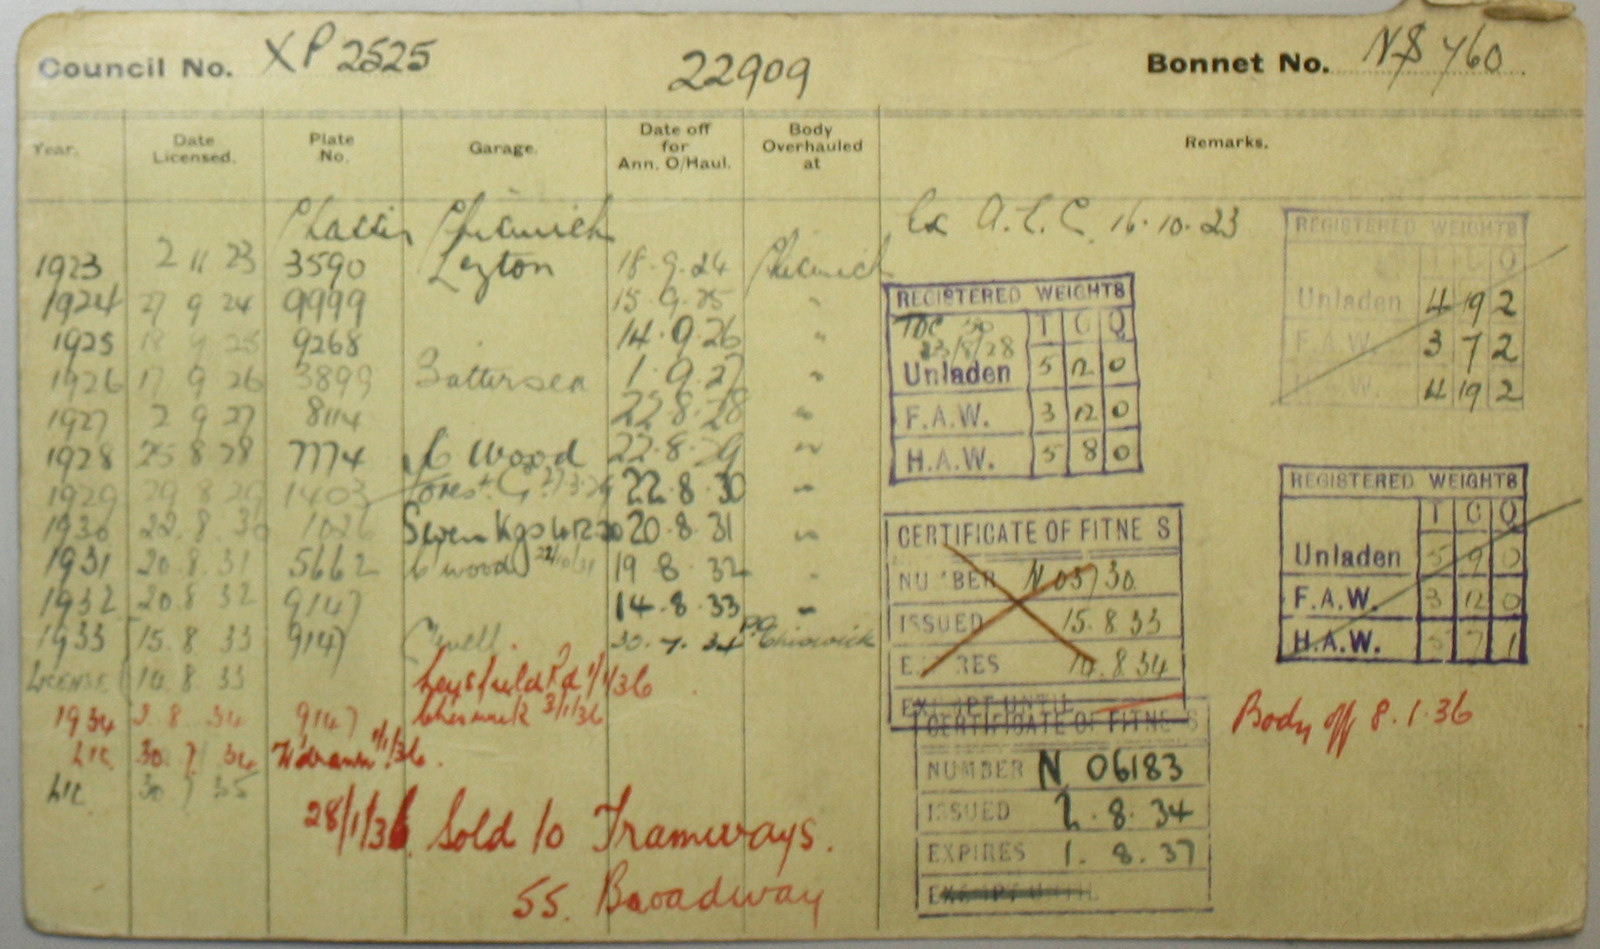 Council No. XP 2525 22909 Bonnet No. NS 760
Year. Date Licensed. Plate No. Garage. Date off for Ann. O/Haul. Body Overhauled at Remarks.
Chassis Chiswick Ex A.E.C. 16.10.23
1923 2 11 23 3590 Leyton 18.9.24 Chiswick
1924 27 9 24 9999 15.9.25 "
1925 18 9 25 9268 14.9.26 "
1926 17 9 26 3899 Battersea 1.9.27 "
1927 2 9 27 8114 22.8.28 "
1928 25 8 28 7774 C Wood 22.8.29 "
1929 29 8 29 1403 Forest G. 22.8.30 "
1930 22.8.30 1026 Seven Kgs 20.8.31 "
1931 20.8.31 5662 C Wood 22/10/31 19 8.32 "
1932 20.8 32 9147 14.8.33 "
1933 15.8.33 9147 30.7.34 Chiswick
LICENSE 14.8.33 Leysfield Rd 1/1/36
1934 2.8.34 9147 Chiswick 3/1/36
Lic 30.7.34 W'drawn 1/1/36.
Lic 30 7 35
28/1/36 Sold to Tramways.
55. Broadway
REGISTERED WEIGHTS
T C Q
Unladen 4 19 2
F.A.W. 3 7 2
H.A.W. 4 19 2
REGISTERED WEIGHTS
T C Q
23/8/28
Unladen 5 12 0
F.A.W. 3 12 0
H.A.W. 5 8 0
REGISTERED WEIGHTS
T C Q
Unladen 5 9 0
F.A.W. 3 12 0
H.A.W. 5 7 1
CERTIFICATE OF FITNE S
NUMBER N 03730
ISSUED 15.8.33
E RES 14.8.34
EXEMPT UNTIL
CERTIFICATE OF FITNE S
NUMBER N 06183
ISSUED 2.8.34
EXPIRES 1.8.37
EXEMPT UNTIL
Body off 8.1.36